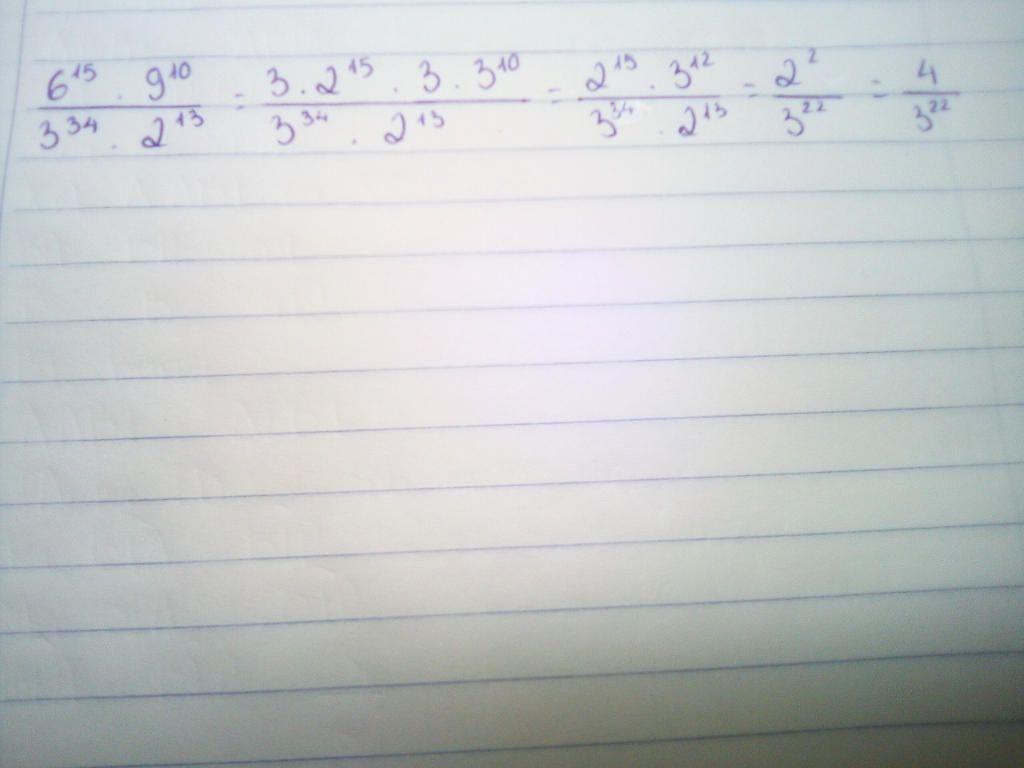 \frac{6^{15} . 9^{10}}{3^{34} . 2^{13}} = \frac{3 . 2^{15} . 3 . 3^{10}}{3^{34} . 2^{13}} = \frac{2^{15} . 3^{12}}{3^{34} . 2^{13}} = \frac{2^{2}}{3^{22}} = \frac{4}{3^{22}}